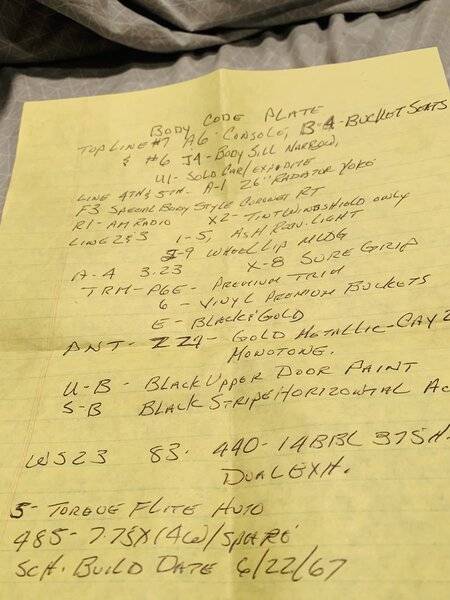 BODY CODE PLATE
TOP LINE #7 A6-CONSOLE, B-4-BUCKET SEATS
& #6 J4-BODY SILL NARROW,
U1-SOLD CAR/EXPEDITE
LINE 4TH & 5TH- A-1 26" RADIATOR YOKE
F3 SPECIAL BODY STYLE CORONET RT
R1-AM RADIO X2-TINT WINDSHIELD ONLY
LINE 2 & 3 1-5, ASH RCVR. LIGHT
J-9 WHEEL LIP MLDG
A-4 3.23 X-8 SURE GRIP
TRM-P6E- PREMIUM TRIM
6- VINYL PREMIUM BUCKETS
E- BLACK & GOLD
PNT- ZZ1- GOLD METALLIC-
MONOTONE.
U-B- BLACK UPPER DOOR PAINT
S-B BLACK STRIPE HORIZONTAL
WS23 83. 440-14BBL 375H.
DUAL EXH.
5- TORQUE FLITE AUTO
485- 7.75X14 W/SPARE
SCH. BUILD DATE 6/22/67